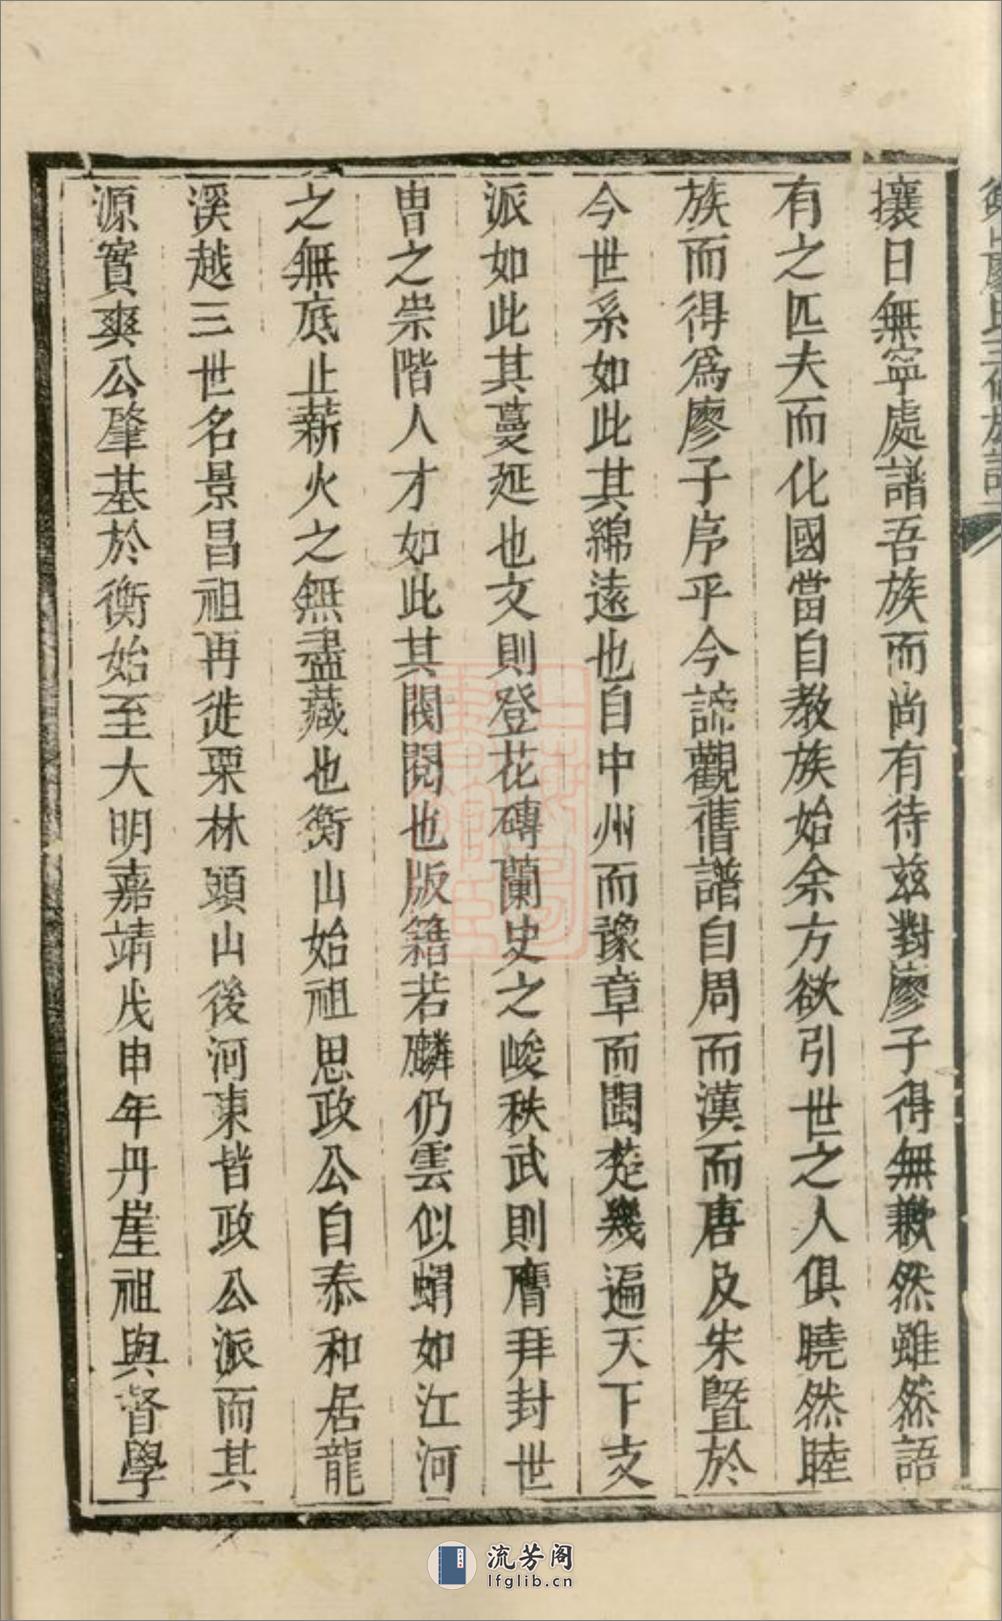 攘日無寧處譜吾族而尚有待玆對廖子得無歉然雖然語
有之匹夫而化國當自教族始余方欲引世之人俱曉然睦
族而得爲廖子序乎今諦觀舊譜自周而漢而唐及宋曁於
今世系如此其綿遠也自中州而豫章而閩楚幾遍天下支
派如此其蔓延也文則登花磚蘭史之峻秩武則膺拜封世
冑之崇階人才如此其閥閱也版籍若麟仍雲似蝟如江河
之無底止薪火之無盡藏也衡山始祖思政公自泰和居龍
溪越三世名景昌祖再徙栗林頭山後河東皆政公派而其
源實爽公肇基於衡始至大明嘉靖戊申年丹崖祖與督學
流芳阁
lfglib.cn